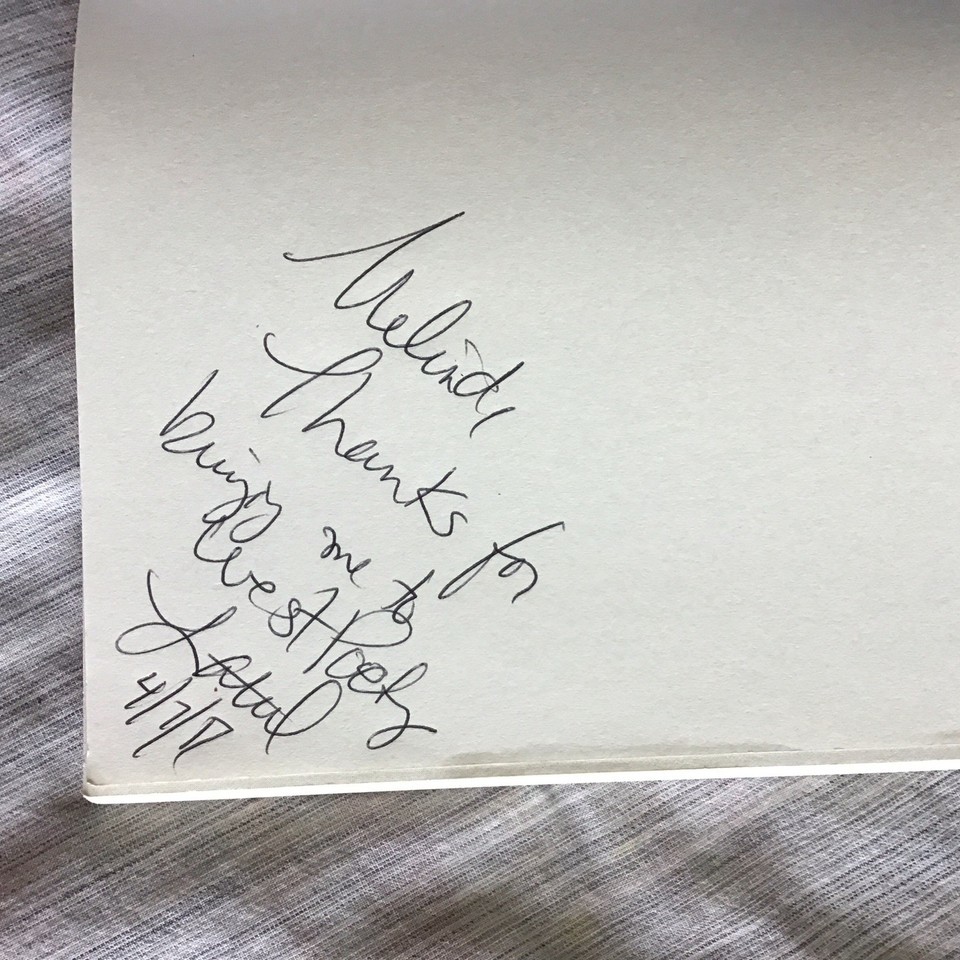 Melinda,
Thanks for
bringing me to
West Poetry
4/7/17